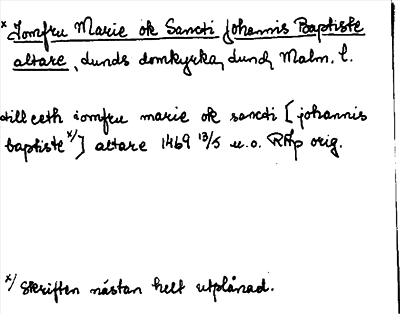 * Jomfru Marie ok Sancti Johannis Baptiste
altare, Lunds domkyrka, Lund, Malm. l.
till eeth iomfru marie ok sancti [johannis
baptiste x/] altare 1469 13/5 u.o. RAp orig.
x/ Skriften nästan helt utplånad.